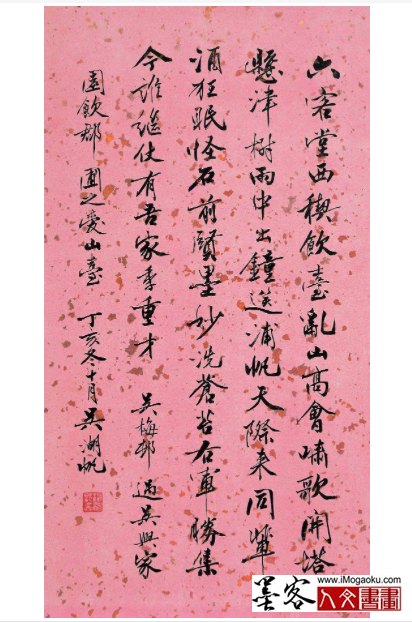 六客堂西禊飲臺亂山高會嘯歌開塔
懸津樹雨中出鐘送浦帆天際來同輩
酒狂眠怪石前賢墨妙洗蒼苔右軍勝集
今誰繼仗有吾家季重才 吳梅邨 過吳興家
園飲郡圃之愛山臺 丁亥冬十月吳湖帆
墨客
www.iMogaoku.com
人文書畫